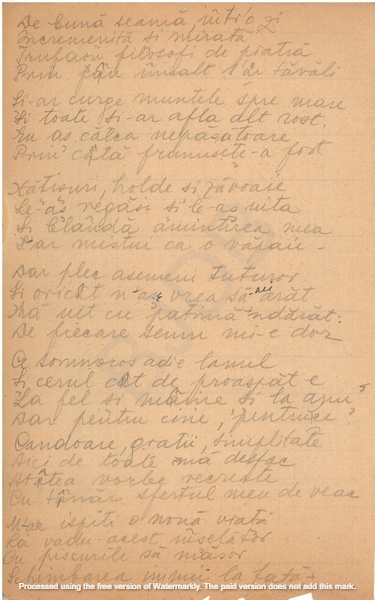 De bună seamă, într-o zi
Încremenită și mirată
Trufașii filosofi de piatră
Prin fân înnalt s'ar tăvăli
Și-ar curge muntele spre mare
Și toate și-ar afla alt rost,
Eu aș călca nepăsătoare
Prin câtă frumusețe-a fost
Hățișuri, holde și zăvoaie
Le-aș regăsi și le-aș uita
Și blândă amintirea mea
L-ar mistui ca o văpaie -
Dar plec asemeni tuturor
Și oricât n-aș vrea să arăt
Mă uit cu patimă-ndărăt:
De fiecare semn mi-e dor
Ce somnoros adie lanul
Și cerul cât de proaspăt e
La fel și mâine și la anu'
Dar pentru cine, pentru ce?
Candoare, grații, simplitate
De toate mă desfac
Atâtea vorbe
Cu tânăr sfertul meu de veac
M-ar ispiti o nouă viață
La vadu-acest înșelător
Cu piscurile să măsor
Schimbarea inimii la față -
Processed using the free version of Watermarkly. The paid version does not add this mark.